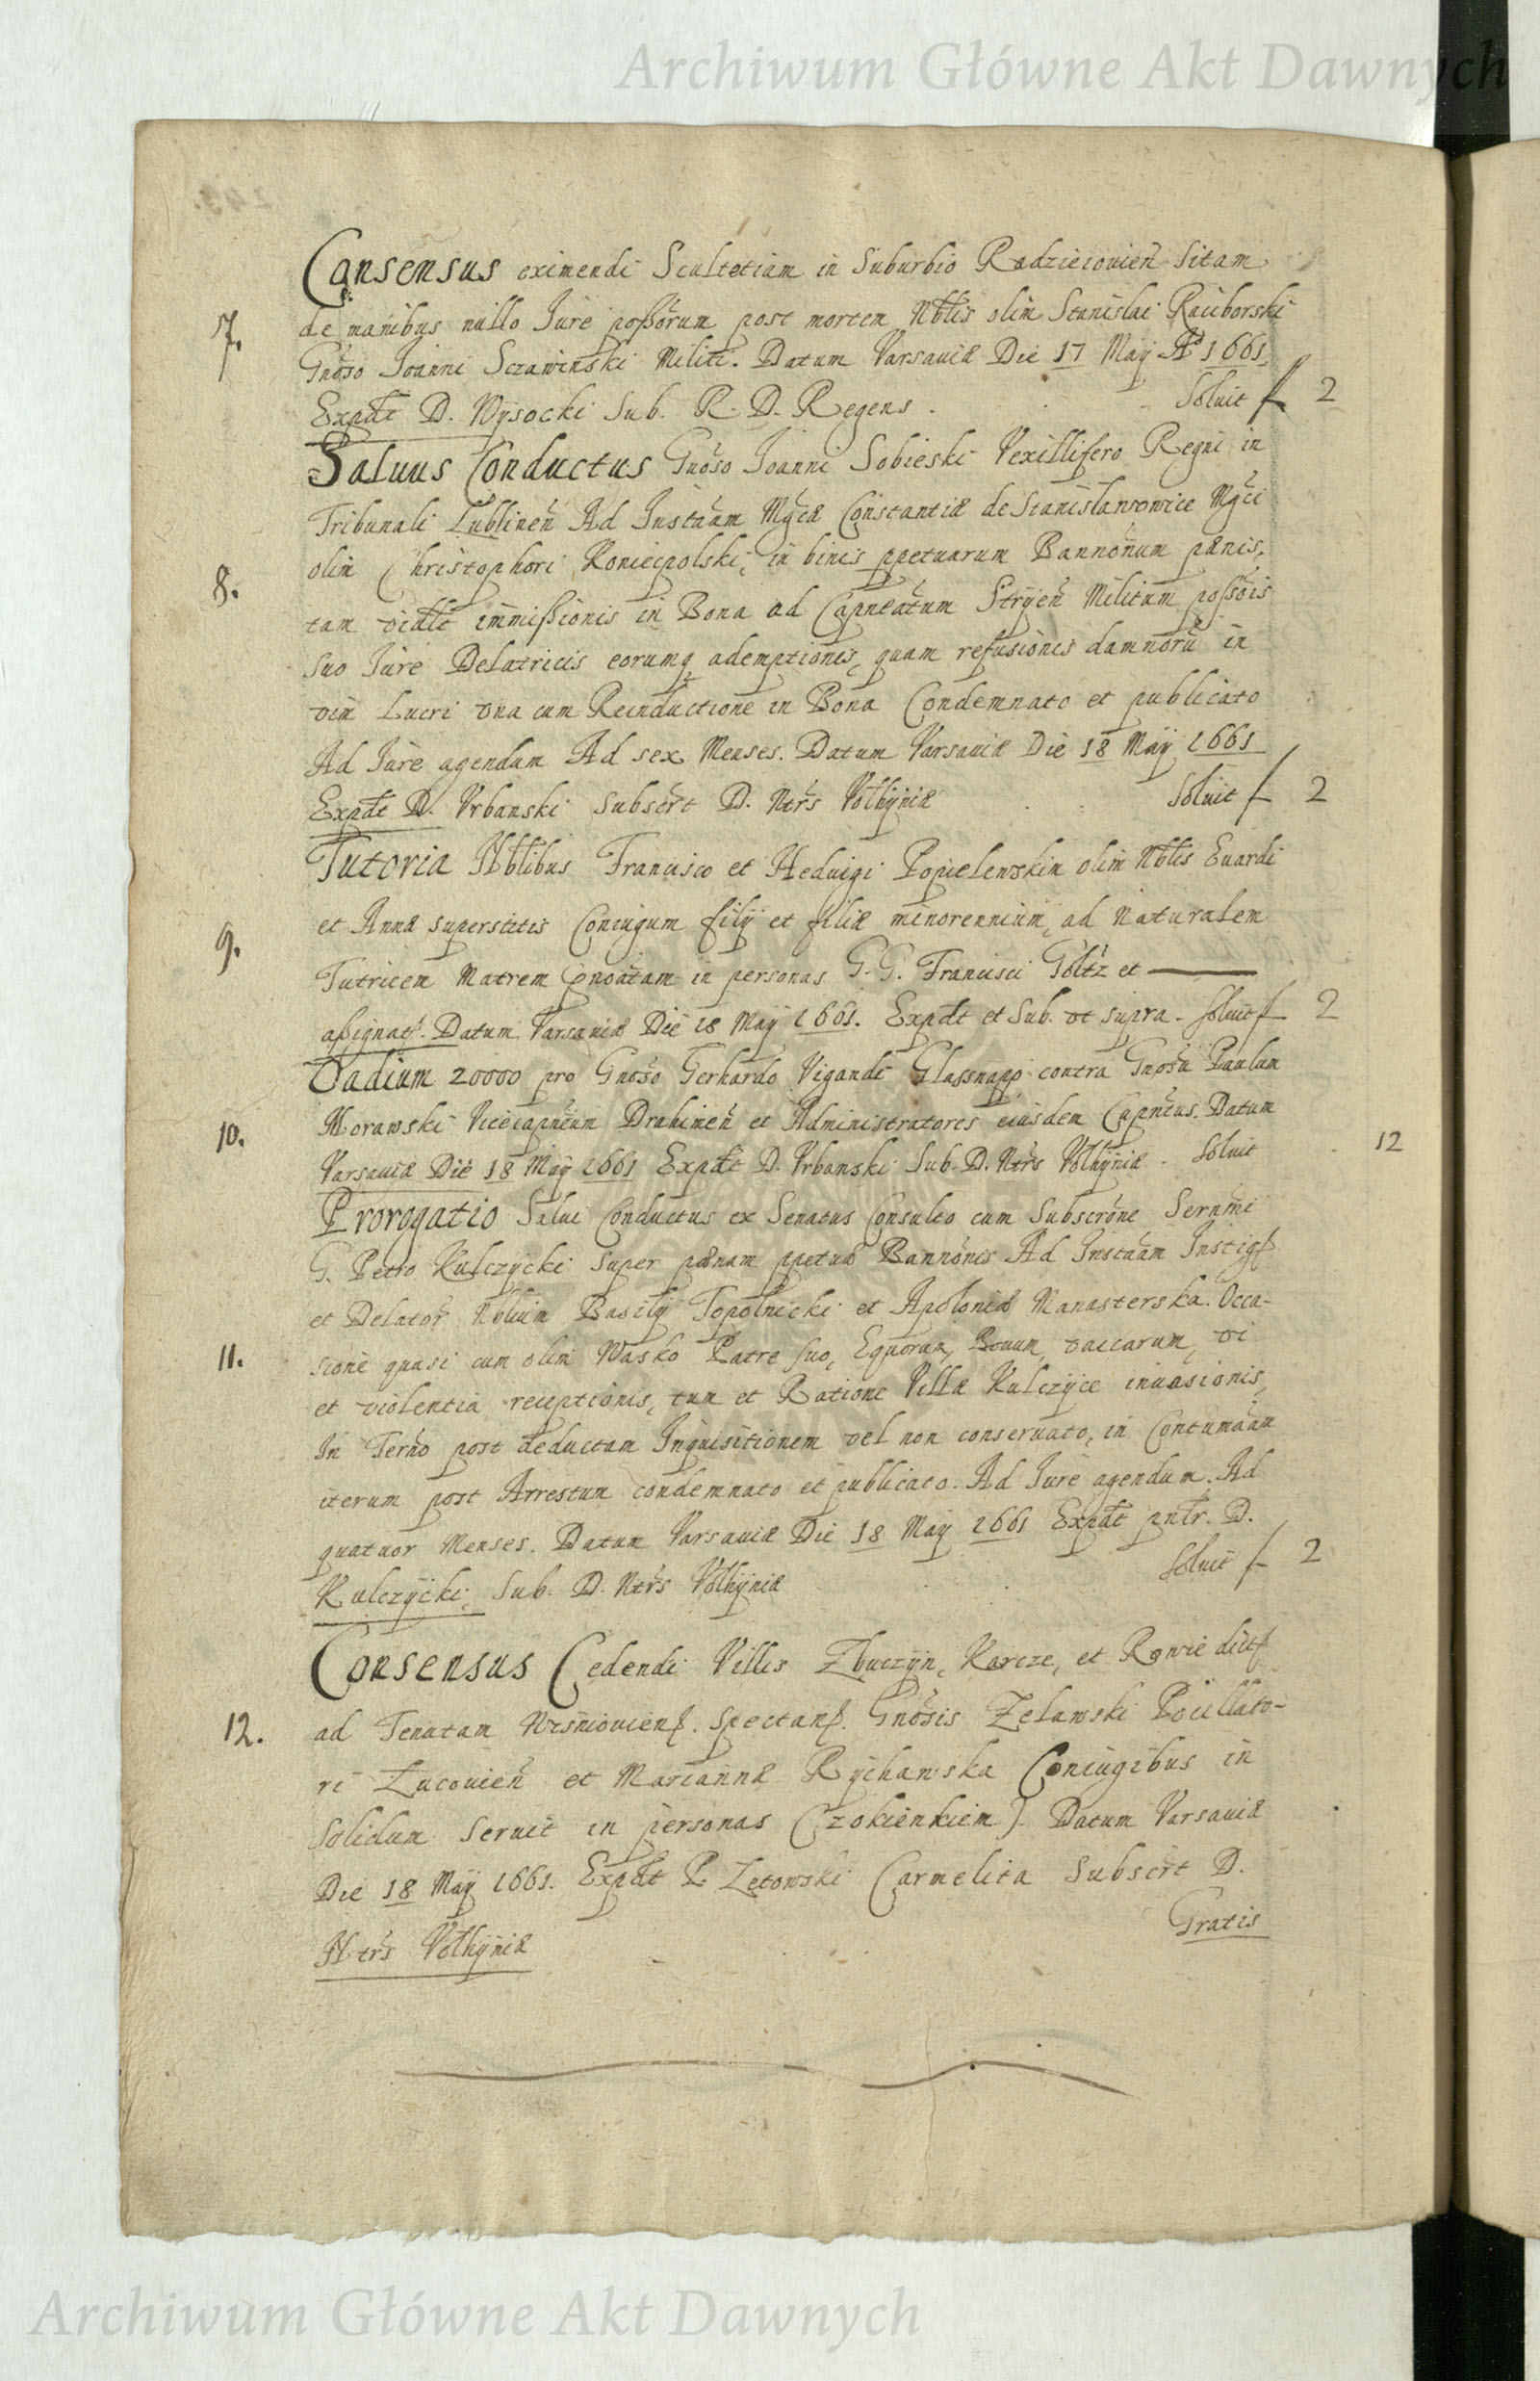 Archiwum Główne Akt Dawnych
Consensus eximendi Scultetiam in Suburbio Radzieiovień Sitam
7. de manibus nullo Jure possorum post mortem Nblis olim Stanislai Raciborski
Gnoso Joanni Sczawinski Militi. Datum Varsaviæ Die 17 Maÿ Aº 1661.
Expdt D. Wysocki Sub. R. D. Regens. Soluit f 2
Saluus Conductus Gnoso Joanni Sobieski Vexillifero Regni in
Tribunali Lublineń Ad Instãam Mgcæ Constantiæ de Stanislawowice Mgci
olim Christophori Koniecpolski, in binis ppetuarum Bannonum pænis,
8. tam vidlt immissionis in Bona ad Capneatum Stryień Militum possois
suo Jure Delatricis eorumq ademptiones, quam refusionis damnorũ in
vim Lucri vna cum Reinductione in Bona Condemnato et publicato
Ad Jure agendum Ad sex Menses. Datum Varsaviæ Die 18 Maÿ 1661
Expdt D. Vrbanski Subscrt D. Ntrs Volhÿniæ Soluit f 2
Tutoria Nblibus Francisco et Heduigi Popielewskim olim Nblis Euardi
et Annæ superstitis Coniugum filÿ et filiæ minorennium, ad Naturalem
9. Tutricem Matrem Cinoatam in personas G. G. Francisci Goltz et ———
assignat. Datum Varsaviæ Die 18 Maÿ 1661. Expdt et Sub. vt supra. Soluit f 2
Vadium 20000 pro Gnoso Gerhardo Vigandi Glassnapp contra Gnosũ Paulum
10. Morawski Vicecapneum Drahimeń et Administratores eiusdem Capntus. Datum
Varsaviæ Die 18 Maÿ 1661 Expdt D. Vrbanski Sub. D. Ntrs Volhÿniæ. Soluit 12
Prorogatio Salui Conductus ex Senatus Consulto cum Subscrone Sernmi
G. Petro Kulczÿcki super pænam ppetuæ Bannonis Ad Instãam Instigf
et Delator Nblium Basilÿ Topolnicki et Apoloniæ Manasterska. Occa-
11. sione quasi cum olim Wasko Patre suo, Equorum, Bouum, vaccarum, vi
et violentia receptionis, tum et Ratione Villæ Kulczÿce inuasionis,
In Termo post deductam Inquisitionem vel non conseruato, in Contumaam
iterum post Arrestum condemnato et publicato. Ad Jure agendum. Ad
quatuor Menses. Datum Varsaviæ Die 18 Maÿ 1661 Expdt pntr. D.
Kulczÿcki, Sub. D. Ntrs Volhÿniæ Soluit f 2
Consensus Cedendi Villis Zbuczÿn, Karcze, et Rowie dict
12. ad Tenutam spectanf. Gnosis Zelawski Pocillato-
ri Lucovień et Mariannæ Rÿchawska Coniugibus in
solidum seruit in personas (Czokienkiem). Datum Varsaviæ
Die 18 Maÿ 1661. Expdt P. Zetowski Carmelita Subscrt D.
Ntrs Volhÿniæ Gratis
Archiwum Główne Akt Dawnych